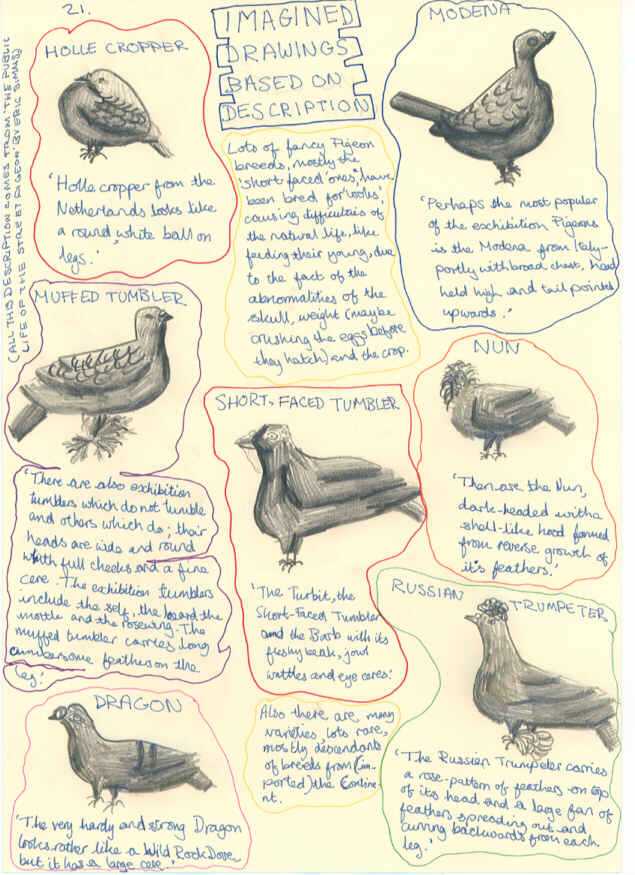 21.
IMAGINED
DRAWINGS
BASED ON
DESCRIPTION
(ALL THIS DESCRIPTION COMES FROM 'THE PUBLIC
LIFE OF THE STREET PIGEON' BY ERIC SIMMS)
HOLLE CROPPER
'Holle cropper from the
Netherlands looks like
a round white ball on
legs.'
Lots of fancy Pigeon
breeds, mostly the
'short faced' ones, have
been bred for 'looks',
causing difficulties of
the natural life, like
feeding their young, due
to the fact of the
abnormalities of the
skull, weight (maybe
crushing the eggs before
they hatch) and the crop.
MODENA
'Perhaps the most popular
of the exhibition Pigeons
is the Modena from Italy-
portly with broad chest, head
held high and tail pointed
upwards.'
MUFFED TUMBLER
'There are also exhibition
tumblers which do not tumble
and others which do; their
heads are wide and round
with full cheeks and a fine
cere. The exhibition tumblers
include the self, the beard, the
mottle and the rosewing. The
muffed tumbler carries long
cumbersome feathers on the
leg.'
SHORT-FACED TUMBLER
'The Turbit, the
Short-Faced Tumbler
and the Barb with its
fleshy beak, jowl
wattles and eye ceres.'
NUN
'Then are the Nun,
dark-headed with a
shell-like hood formed
from reverse growth of
it's feathers.'
DRAGON
'The very hardy and strong Dragon
looks rather like a Wild Rock Dove
but it has a large cere.'
Also there are many
varieties, lots rare,
mostly descendants
of breeds from (im-
ported) the Contine-
nt.
RUSSIAN TRUMPETER
'The Russian Trumpeter carries
a rose-pattern of feathers on top
of its head and a large fan of
feathers spreading out and
curving backwards from each
leg.'